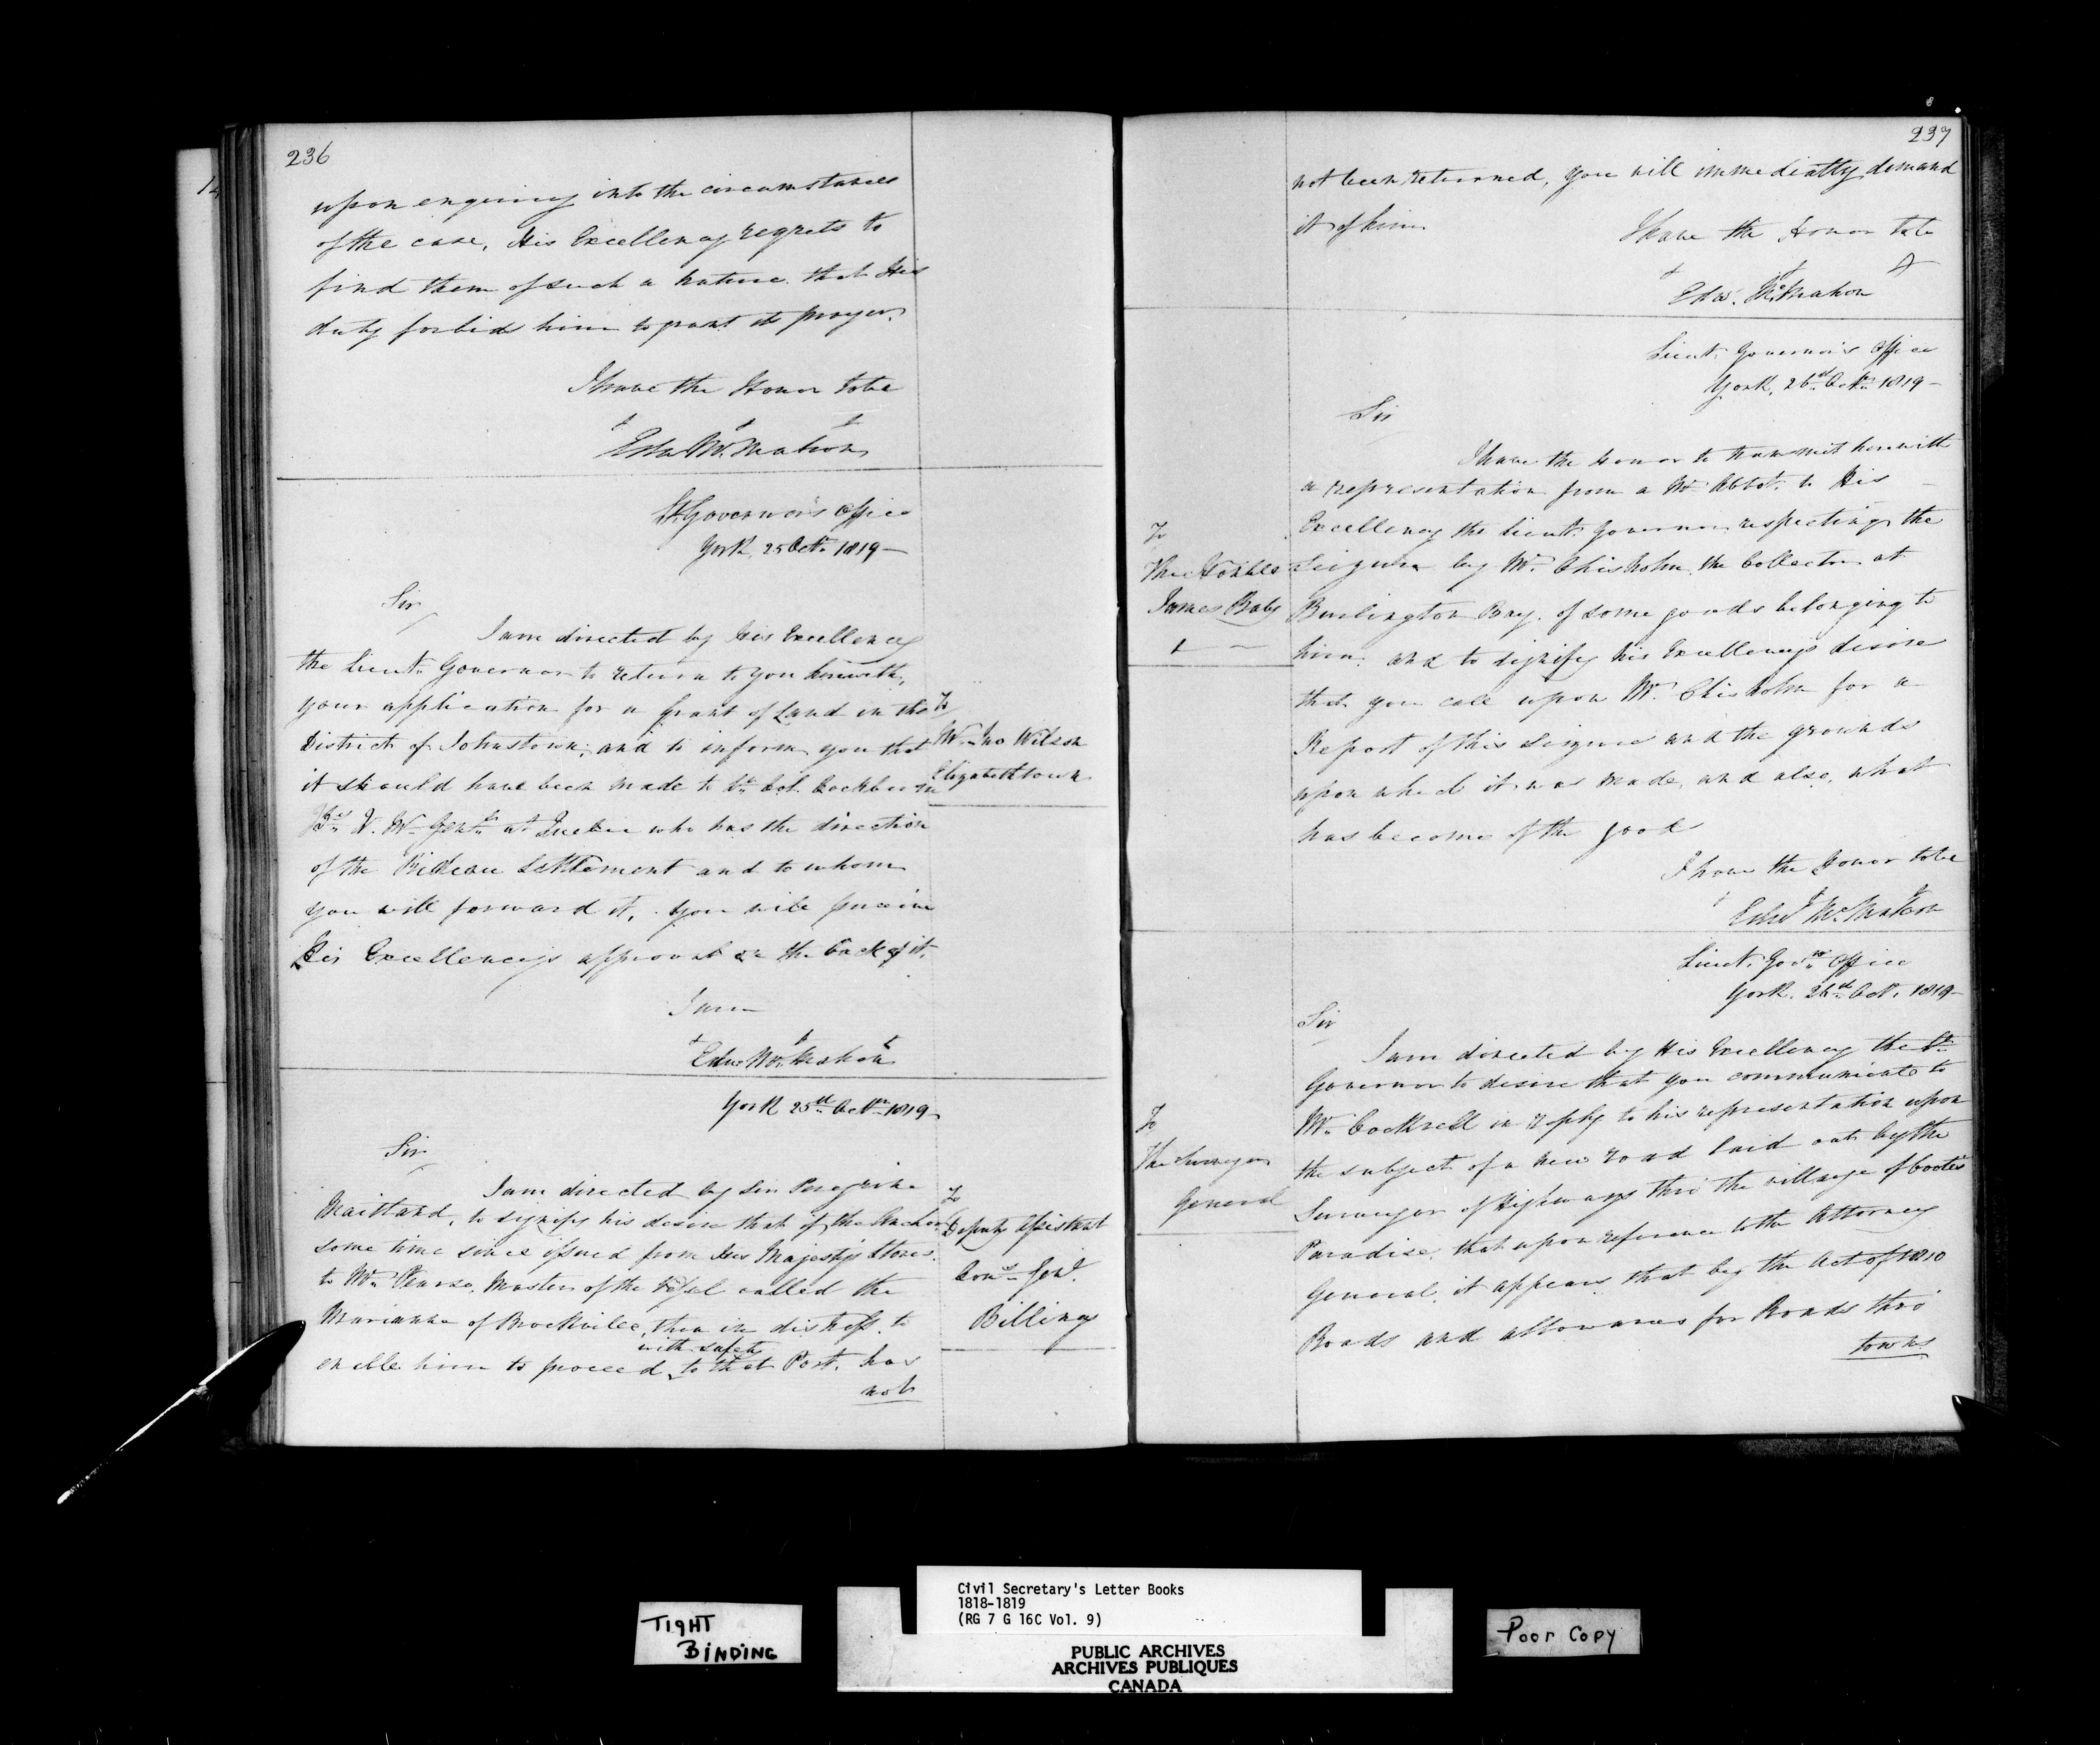 236
upon enquiry into the circumstances
of the case, His Excellency regrets to
find them of such a nature that His
duty forbids him to grant its prayer.
I have the Honor to be
Edw McMahon
Lt. Governor's Office
York, 25 Octr. 1819—
Sir
I am directed by His Excellency
the Lieut. Governor to return to you herewith,
your application for a Grant of Land in the
District of Johnstown, and to inform you that
it should have been made to Lt. Col. Cockburn
Qr. Mr. Genl. at Quebec who has the direction
of the Rideau Settlement and to whom
you will forward it, you will perceive
His Excellency's approval on the back of it.
I am
Edw McMahon
To
Mr. Jno Wilson
Elizabethtown
York 25th Octr. 1819—
Sir
I am directed by Sir Peregrine
Maitland, to signify his desire that if the Anchor
some time since issued from His Majesty's Stores
to Mr. Pearso, Master of the Vessel called the
Marianne of Brockville, then in distress to
with safety
enable him to proceed to that Port, has
not
To
Deputy Assistant
Comy. Genl.
Billings
237
not been returned, you will immediately demand
it of him
I have the Honor to be
Edw. McMahon
Lieut. Governor's Office
York, 26th Octr. 1819—
Sir
I have the Honor to transmit herewith
a representation from a Mr. Abbot to His
Excellency the Lieut. Governor respecting the
Seizure by Mr. Chisholm the Collector at
Burlington Bay, of some goods belonging to
him, and to signify his Excellency's desire
that you call upon Mr. Chisholm for a
Report of this Seizure and the grounds
upon which it was made, and also, what
has become of the good
I have the Honor to be
Edwd McMahon
To
The Honble
James Baby
Lieut. Govrs. Office
York. 26th Oct. 1819—
Sir
I am directed by His Excellency the Lt.
Governor to desire that you communicate to
Mr. Cockrell in reply to his representation upon
the subject of a new road laid out by the
Surveyor of Highways thro' the village of Coote's
Paradise, that upon reference to the Attorney
General, it appears that by the Act of 1810
Roads and allowances for Roads thro'
towns
To
The Surveyor
General
TIGHT
BINDING
Civil Secretary's Letter Books
1818-1819
(RG 7 G 16C Vol. 9)
PUBLIC ARCHIVES
ARCHIVES PUBLIQUES
CANADA
Poor Copy